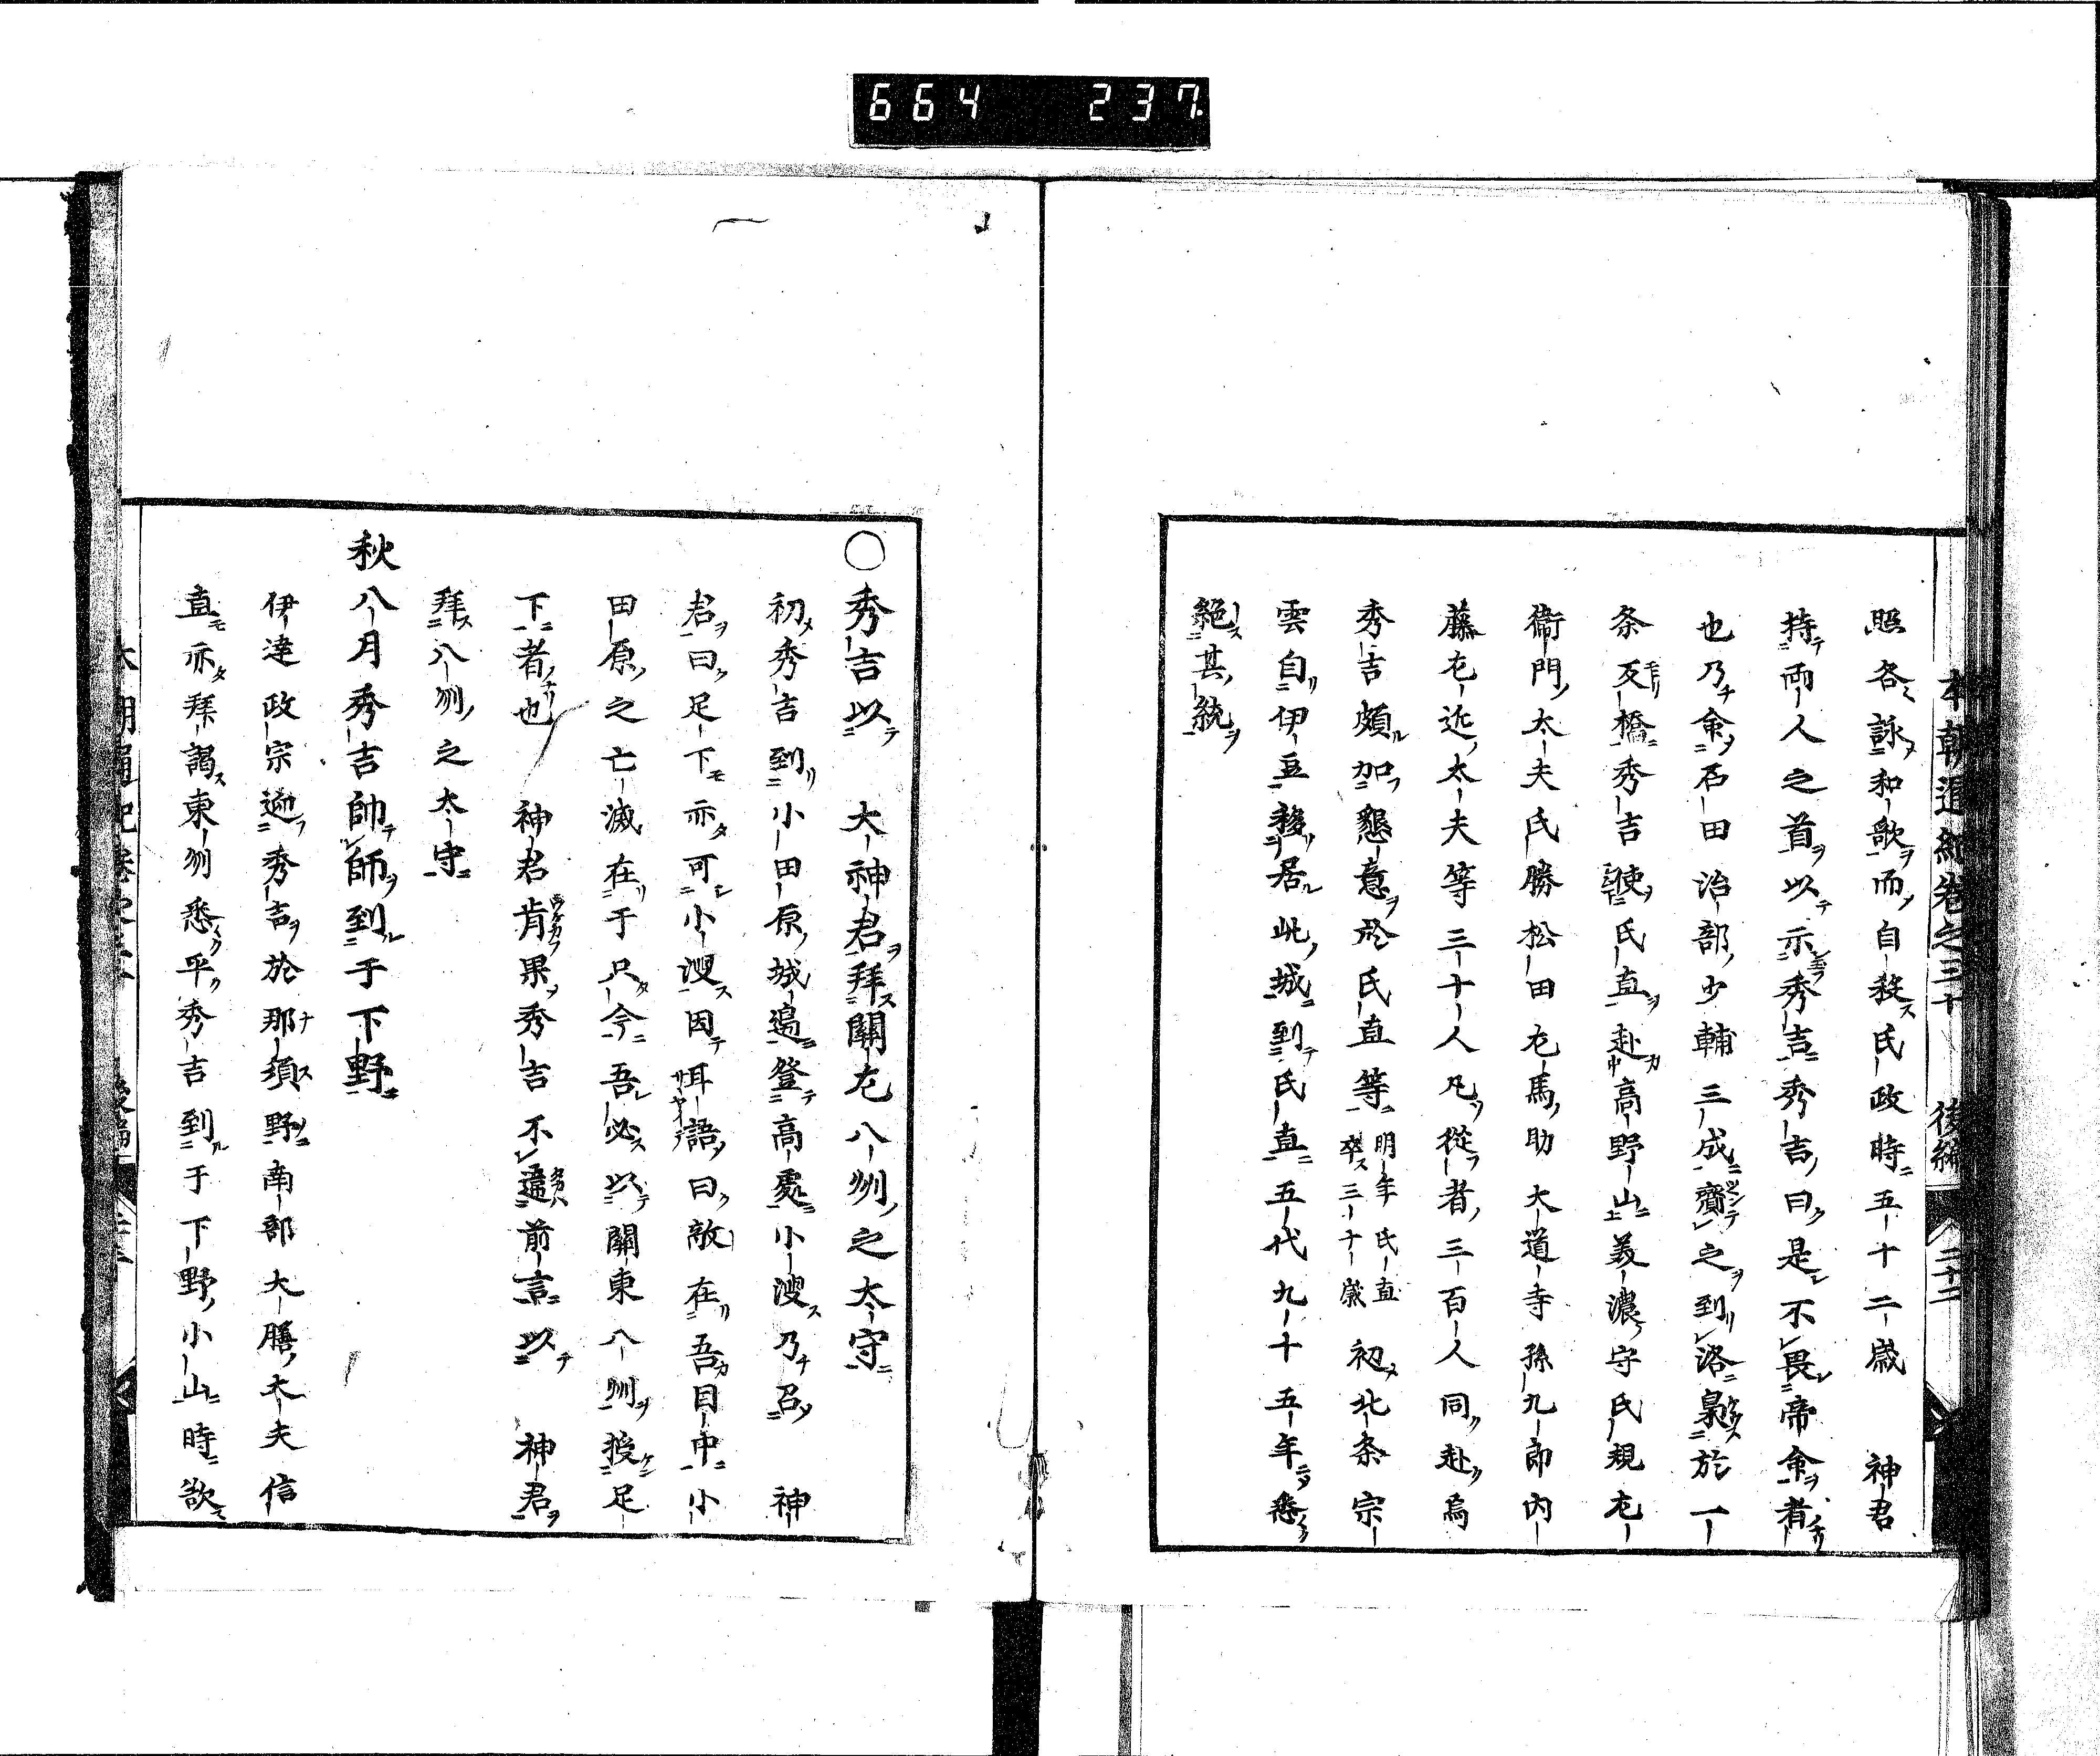 664 237
本朝通紀卷之三十 後編 二十二
照各詠和歌而自殺氏政時五十二歳 神君
持両人之首以示秀吉秀吉曰是不畏帝命者
也乃命石田治部少輔三成齎之到洛梟於一
条反橋秀吉使氏直赴高野山美濃守氏規左
衛門太夫氏勝松田左馬助大道寺孫九郎内
藤左近太夫等三十人凡從者三百人同赴焉
秀吉頗加懇意於氏直等明年氏直卒三十歳初北条宗
雲自伊豆移居此城到氏直五代九十五年悉
絶其統
○秀吉以 大神君拜關左八州之太守
初秀吉到小田原城邉登高處小溲乃召 神
君曰足下亦可小溲因耳語曰敵在吾目中小
田原之亡滅在于只今吾必以關東八州授足
下者也 神君肯果秀吉不違前言以 神君
拜八州之太守
秋八月秀吉帥師到于下野
伊達政宗迎秀吉於那須野南部大膳太夫信
直亦拜謁東州悉平秀吉到于下野小山時欲